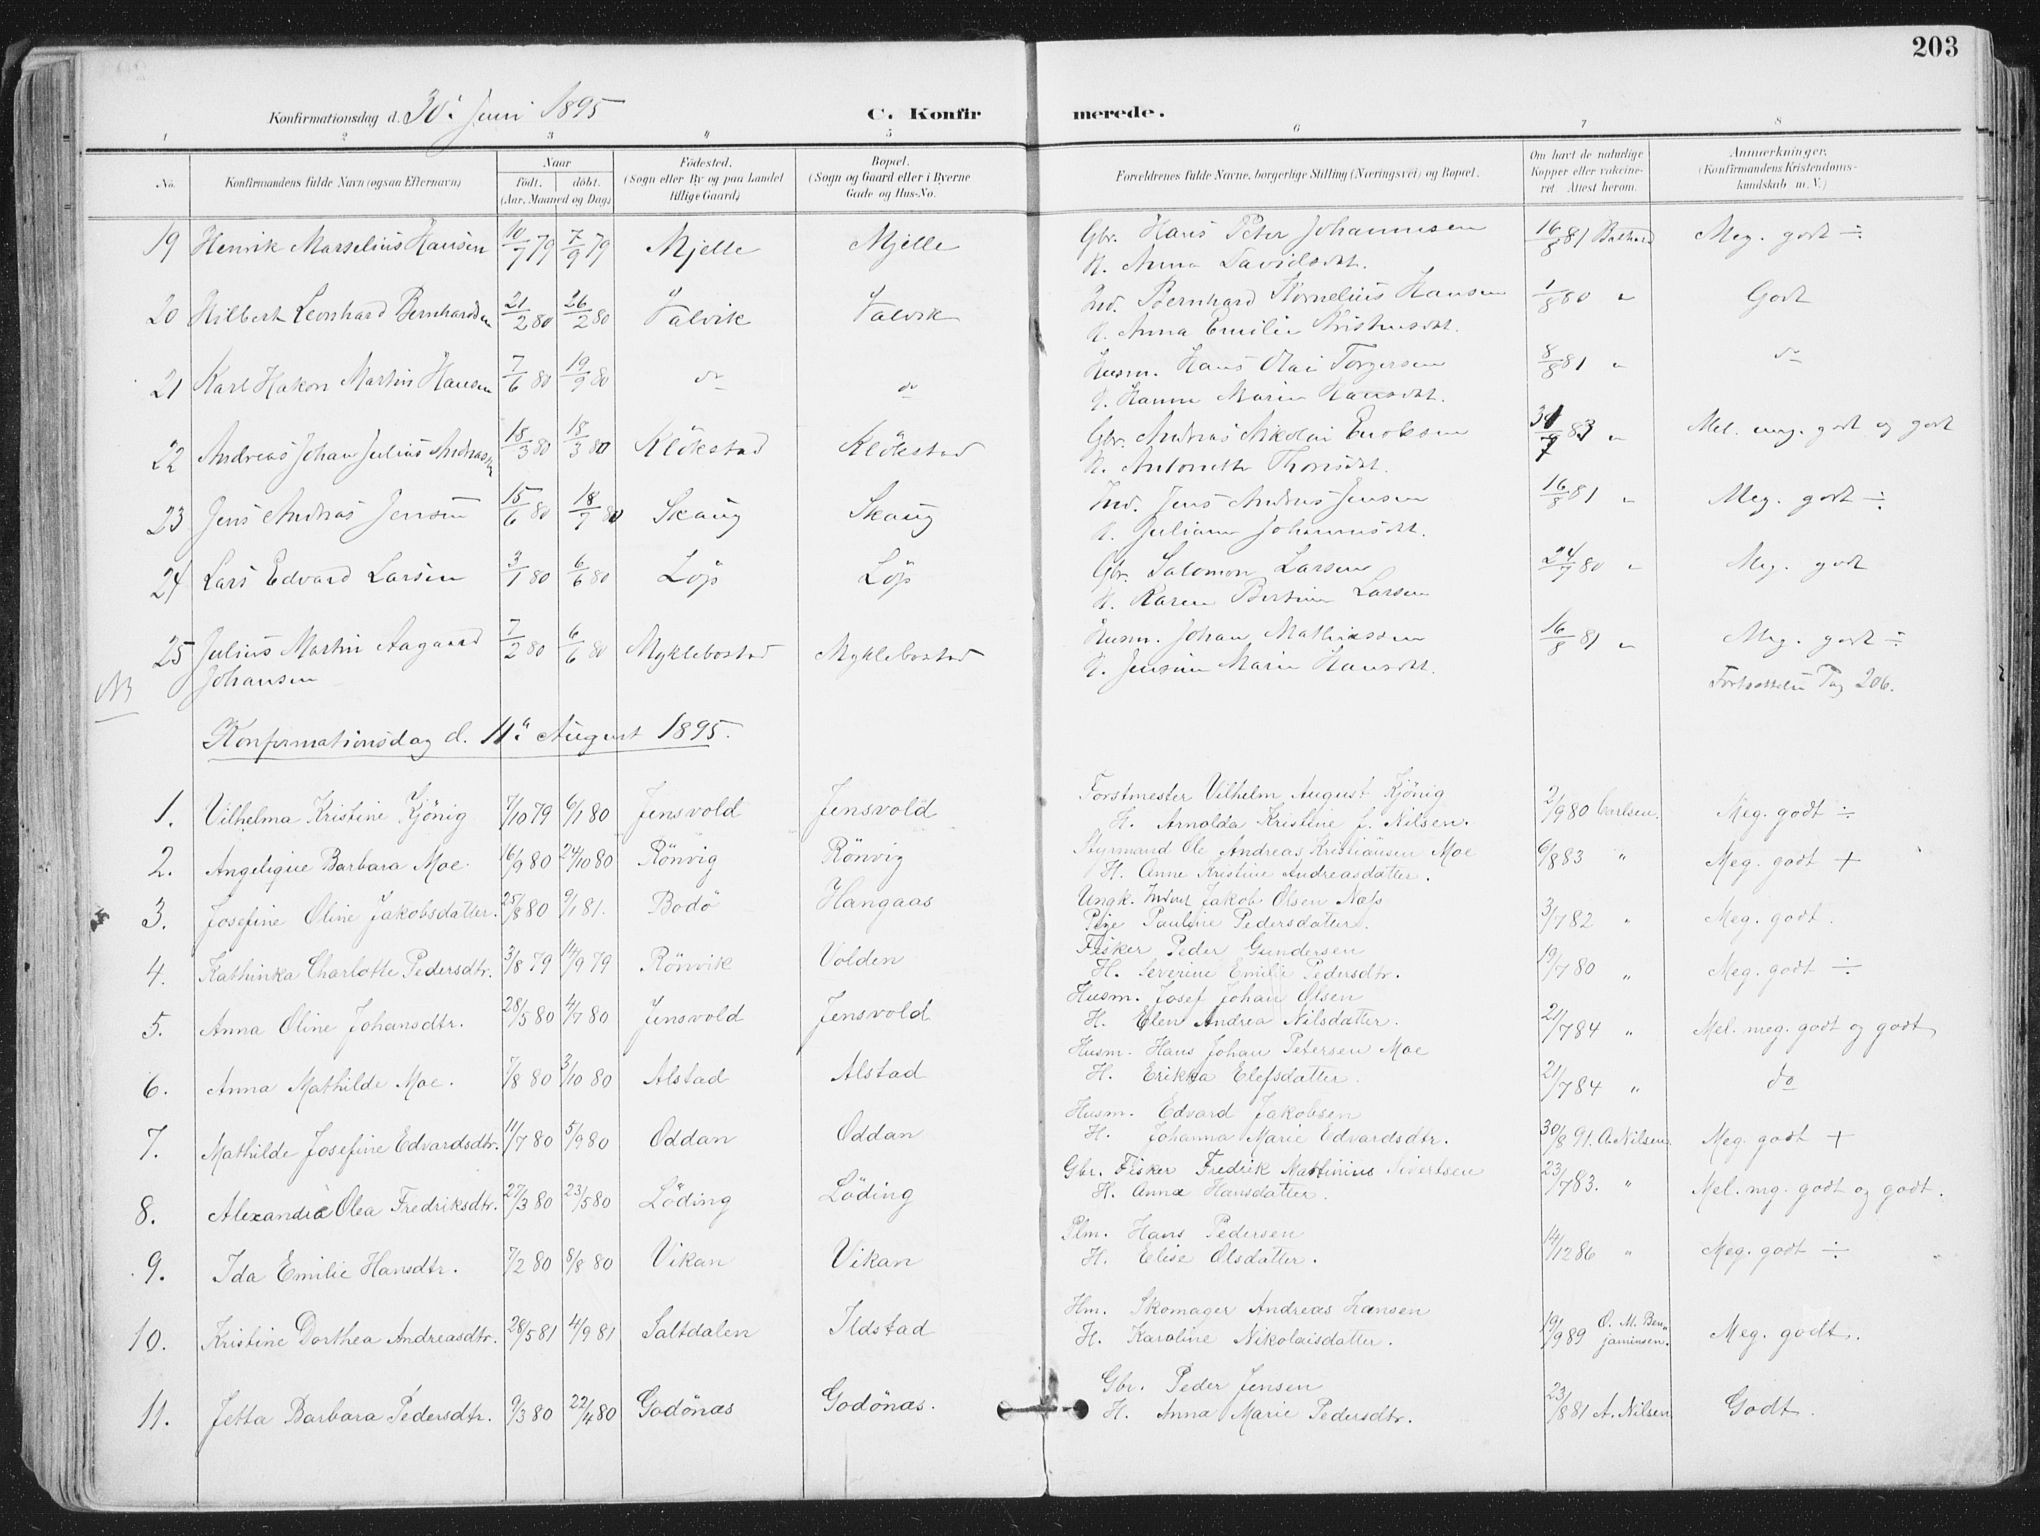 203
Konfirmationsdag d. 30' Juni 1895 C. Konfirmerede.
1 2 3 4 5 6 7 8
No. Konfirmandens fulde Navn (ogsaa Efternavn) Naar født. døbt. (Aar, Maaned og Dag) Fødested. (Sogn eller By og paa Landet tillige Gaard) Bopæl. (Sogn og Gaard eller i Byerne Gade og Hus-No. Forældrenes fulde Navne, borgerlige Stilling (Næringsvei) og Bopæl. Om havt de naturlige Kopper eller vakcineret. Attest herom. Anmærkninger. (Konfirmandens Kristendomskundskab m. V.)
19 Henrik Marselius Hansen 10/7 79 7/9 79 Mjelle Mjelle Gbr. Hans Peter Johannesen 16/8 81 Meg. godt ÷
H. Anna Davidsdt.
20 Hilbert Leonhard Bernhardsen 21/2 80 26/2 80 Valvik Valvik Ind. Bernhard Kornelius Hansen 1/8 80 " Godt
H. Anna Emilie Kristensdt.
21 Karl Hakon Martin Hansen 7/6 80 19/9 80 do do Husm. Hans Olai Torgersen 8/8 81 " do
H. Hanna Maria Hansdt.
22 Andreas Johan Julius Andreassen 18/3 80 18/3 80 Klökstad Klökstad Gbr. Andreas Nikolai Enoksen 83 " Mel. meg. godt og godt
H. Antonette Thorisdt.
23 Jens Andreas Jensen 15/6 80 18/7 80 Skaug Skaug Ind. Jens Andreas Jensen 16/8 81 " Meg. godt ÷
H. Juliane Johannesdt.
24 Lars Edvard Larsen 3/1 80 6/6 80 Löp Löp Gbr. Salomon Larsen 24/7 80 " Meg. godt
H. Karen Bertine Larsen
25 Julius Martin Aagaard 7/2 80 6/6 80 Myklebostad Myklebostad Husm. Johan Mathiassen 16/8 81 " Meg. godt ÷
Johansen H. Jensine Marie Hansdt.
NB Fortsættelse Pag 206.
Konfirmationsdag d. 11' August 1895.
1. Vilhelma Kristine Kjönig 7/10 79 6/1 80 Jensvold Jensvold Forstmester Vilhelm August Kjönig 2/9 80 Carlsen. Meg. godt ÷
H. Arnolda Kristine f. Nilsen.
2. Angelique Barbara Moe. 16/9 80 24/10 80 Rönvig Rönvig Styrmand Ole Andreas Kristiansen Moe 6/8 83 " Meg. godt +
H. Anne Kristine Andreasdatter.
3. Josefine Oline Jakobsdatter. 25/8 80 9/1 81. Bodö Hangaas Ungk. Jakob Olsen Næss 3/7 82 " Meg. godt.
Pige Pauline Pedersdatter.
4. Kathinka Charlotte Pedersdtr. 3/8 79 14/9 79 Rönvik Volden Fisker Peder Gundersen 19/7 80 " Meg. godt ÷
H. Severine Emilie Pedersdtr.
5. Anna Oline Johansdtr. 28/5 80 4/7 80 Jensvold Jensvold Husm. Josef Johan Olsen 21/7 84 " Mel. meg. godt og godt
H. Elen Andrea Nilsdatter.
6. Anna Mathilde Moe. 7/8 80 3/10 80 Alstad Alstad Husm. Hans Johan Petersen Moe 21/7 84 " do
H. Erikka Elefsdatter.
7. Mathilde Josefine Edvardsdtr. 11/7 80 5/9 80 Oddan Oddan Husm. Edvard Jakobsen 30/8 91. A. Nilsen. Meg. godt +
H. Johanna Marie Edvardsdtr.
8. Alexandra Olea Fredriksdtr. 27/3 80 23/5 80 Löding Löding Gbr. Fisker Fredrik Martinius Sivertsen 23/7 83. " Mel. mg. godt og godt.
H. Anna Hansdatter.
9. Ida Emilie Hansdtr. 7/2 80 8/8 80 Vikan Vikan Plm. Hans Pedersen 14/12 86 " Meg. godt ÷
H. Elise Olsdatter.
10. Kristine Dorthea Andreasdtr. 28/5 81 4/9 81 Saltdalen Ildstad Hm. Skomager Andreas Hansen 19/9 89 O. M. Benjaminsen. Meg. godt.
H. Karoline Nikolaisdatter.
11. Jetta Barbara Pedersdtr. 9/3 80 22/4 80 Godönæs Godönæs. Gbr. Peder Jensen 23/8 81 A. Nilsen Godt.
H. Anna Marie Pedersdtr.